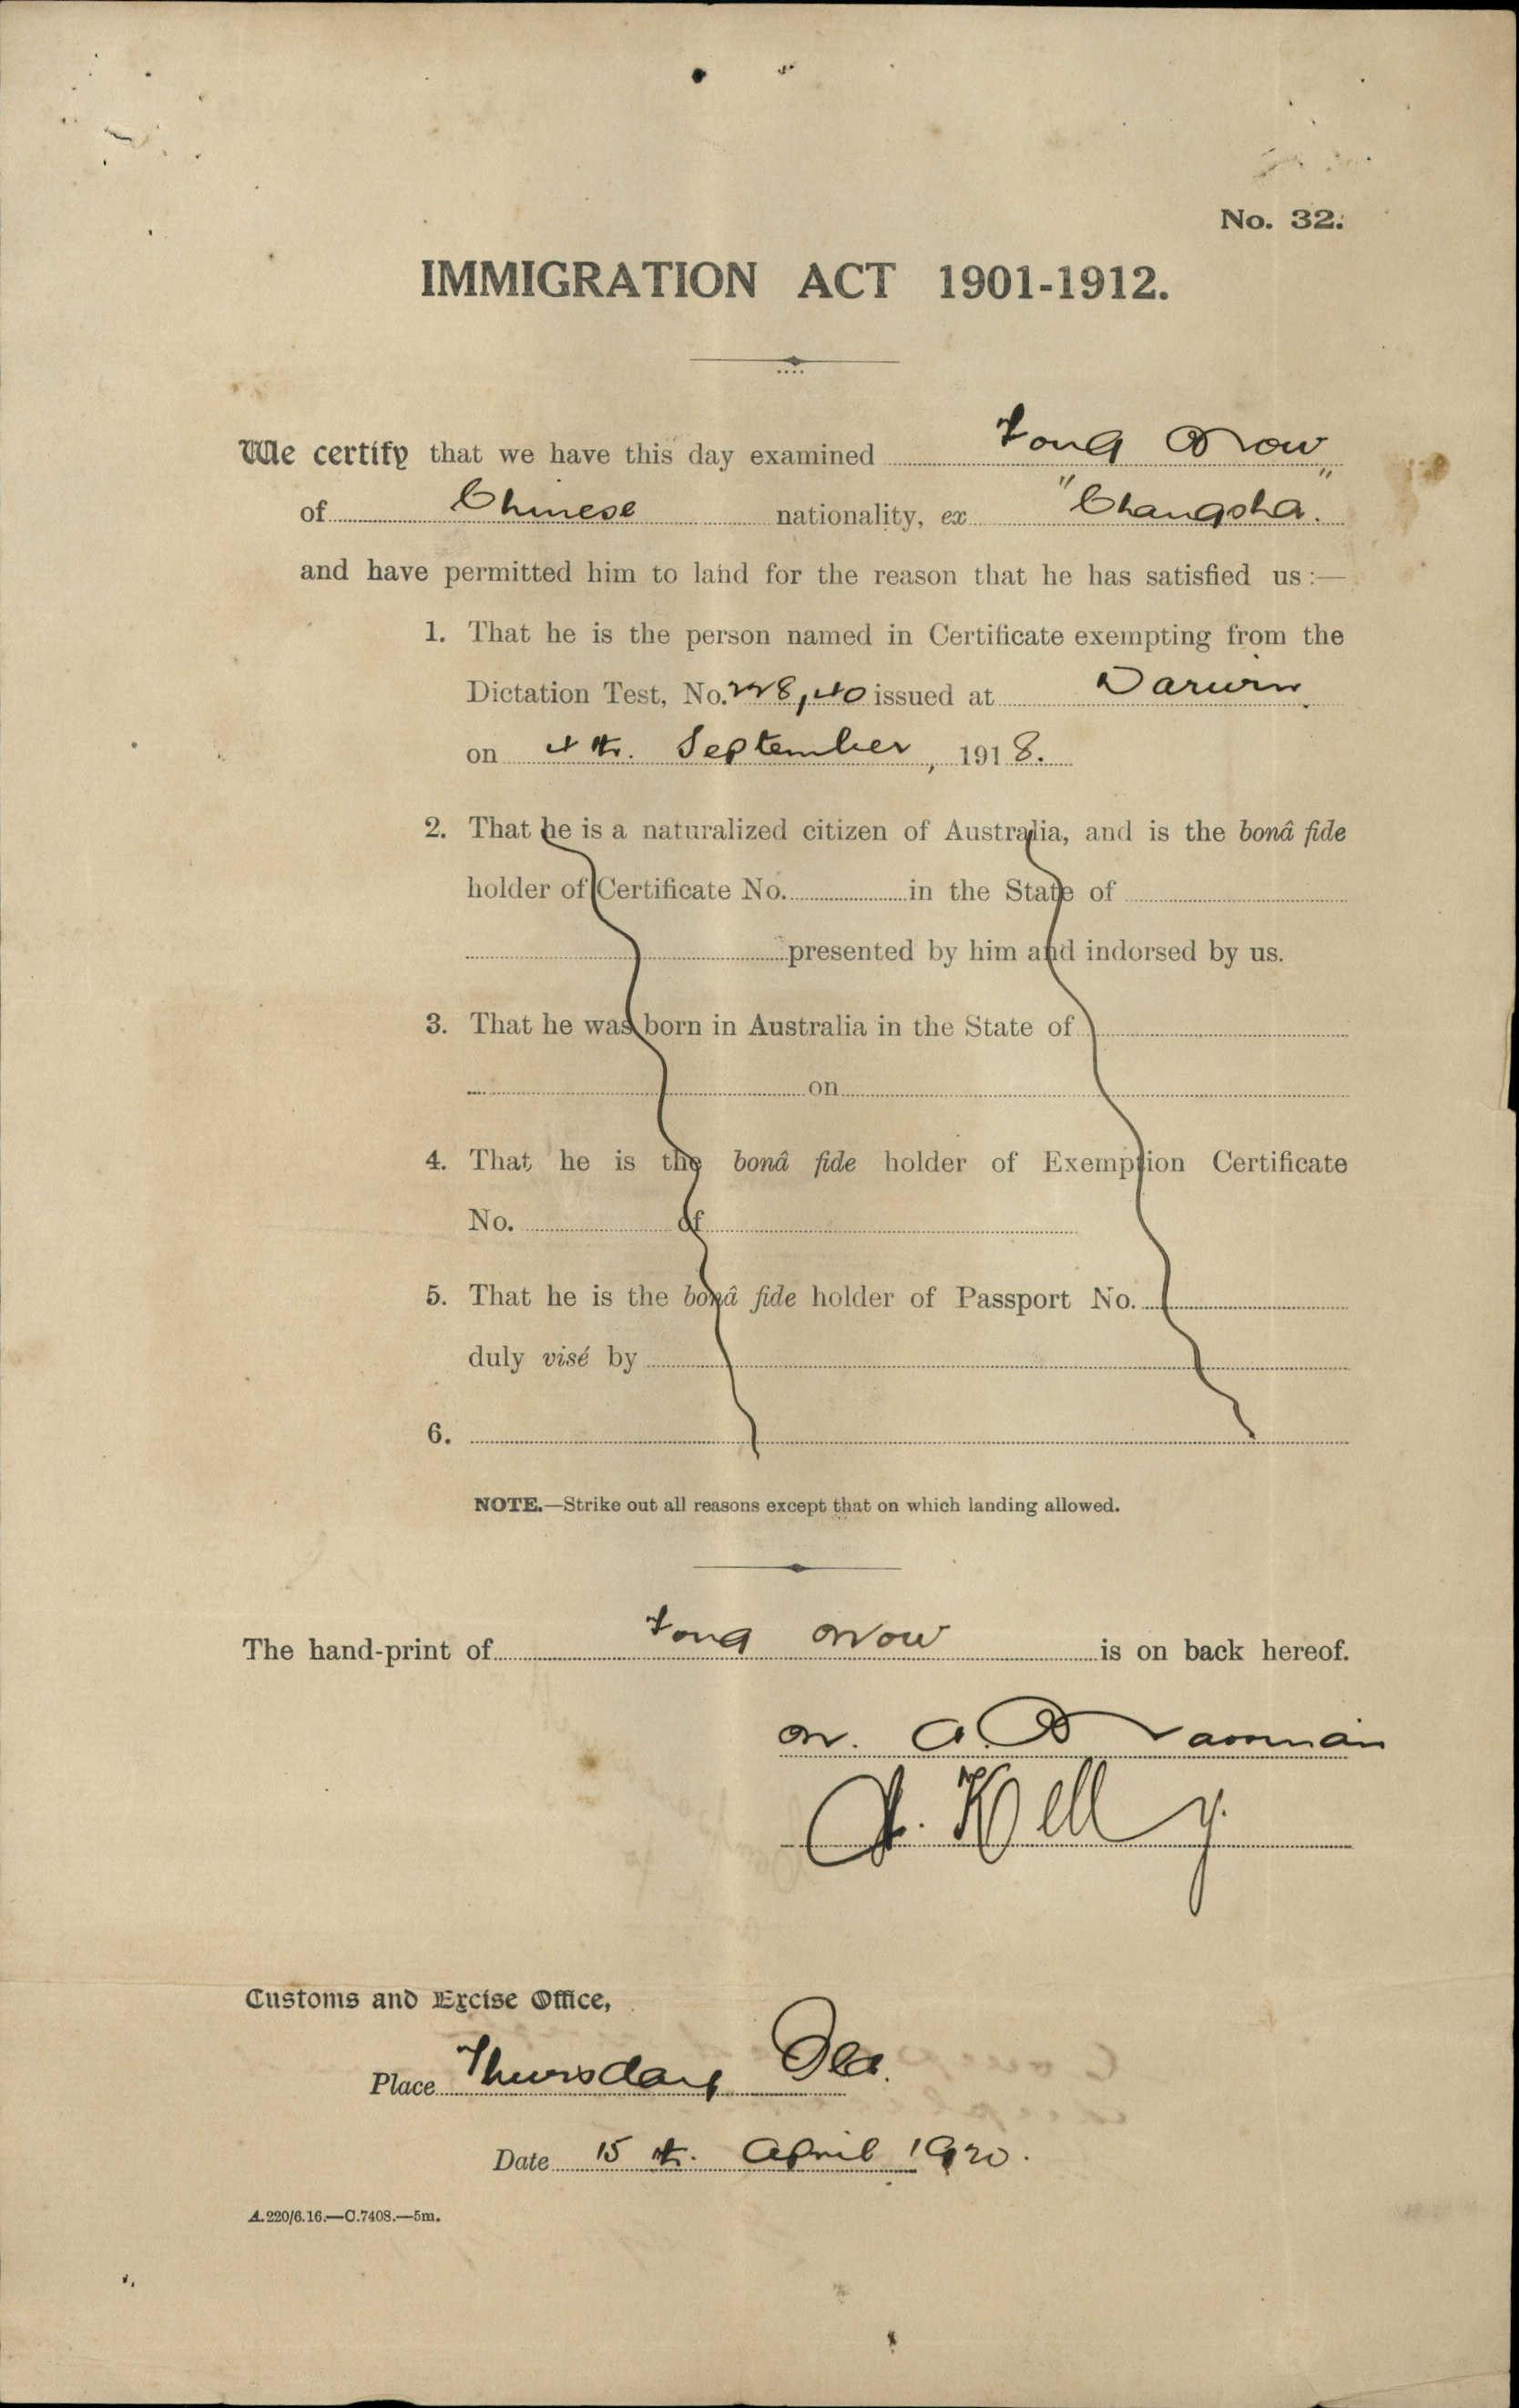 No. 32.
IMMIGRATION ACT 1901-1912.
We certify that we have this day examined Fong Now
of Chinese nationality, ex "Changsha."
and have permitted him to land for the reason that he has satisfied us :—
1. That he is the person named in Certificate exempting from the
Dictation Test, No. issued at Darwin
on 4th. September, 1918.
2. That he is a naturalized citizen of Australia, and is the bonâ fide
holder of Certificate No. in the State of
presented by him and indorsed by us.
3. That he was born in Australia in the State of
on
4. That he is the bonâ fide holder of Exemption Certificate
No. of
5. That he is the bonâ fide holder of Passport No.
duly visé by
6.
NOTE.—Strike out all reasons except that on which landing allowed.
The hand-print of Fong Now is on back hereof.
J. Kelly.
Customs and Excise Office,
Place Thursday Isd.
Date 15th. April 1920.
A.220/6.16.—C.7408.—5m.